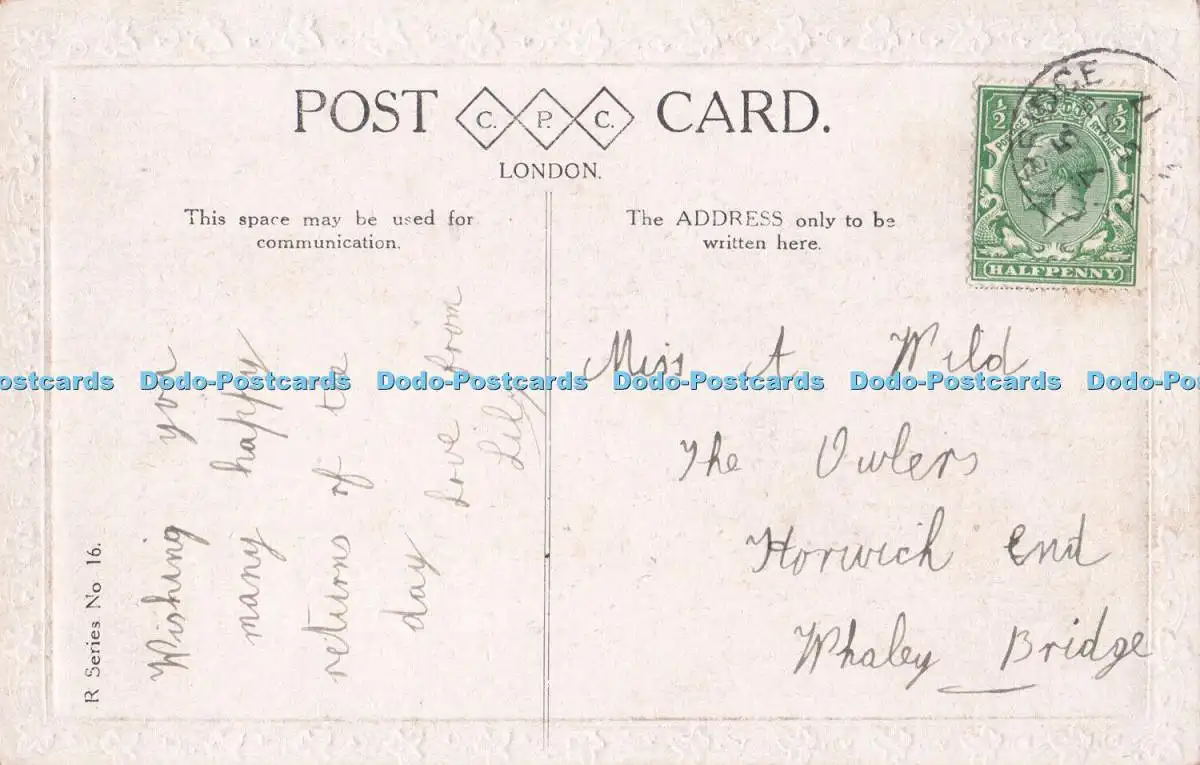 POST C. P. C. CARD.
LONDON.
This space may be used for
communication.
The ADDRESS only to be
written here.
½ ½
POSTAGE REVENUE
HALFPENNY
Wishing you
many happy
returns of the
day
Love from
Lily
Miss A Wild
The Owlers
Horwich End
Whaley Bridge
R Series No 16.
Dodo-Postcards Dodo-Postcards Dodo-Postcards Dodo-Postcards Dodo-Postcards